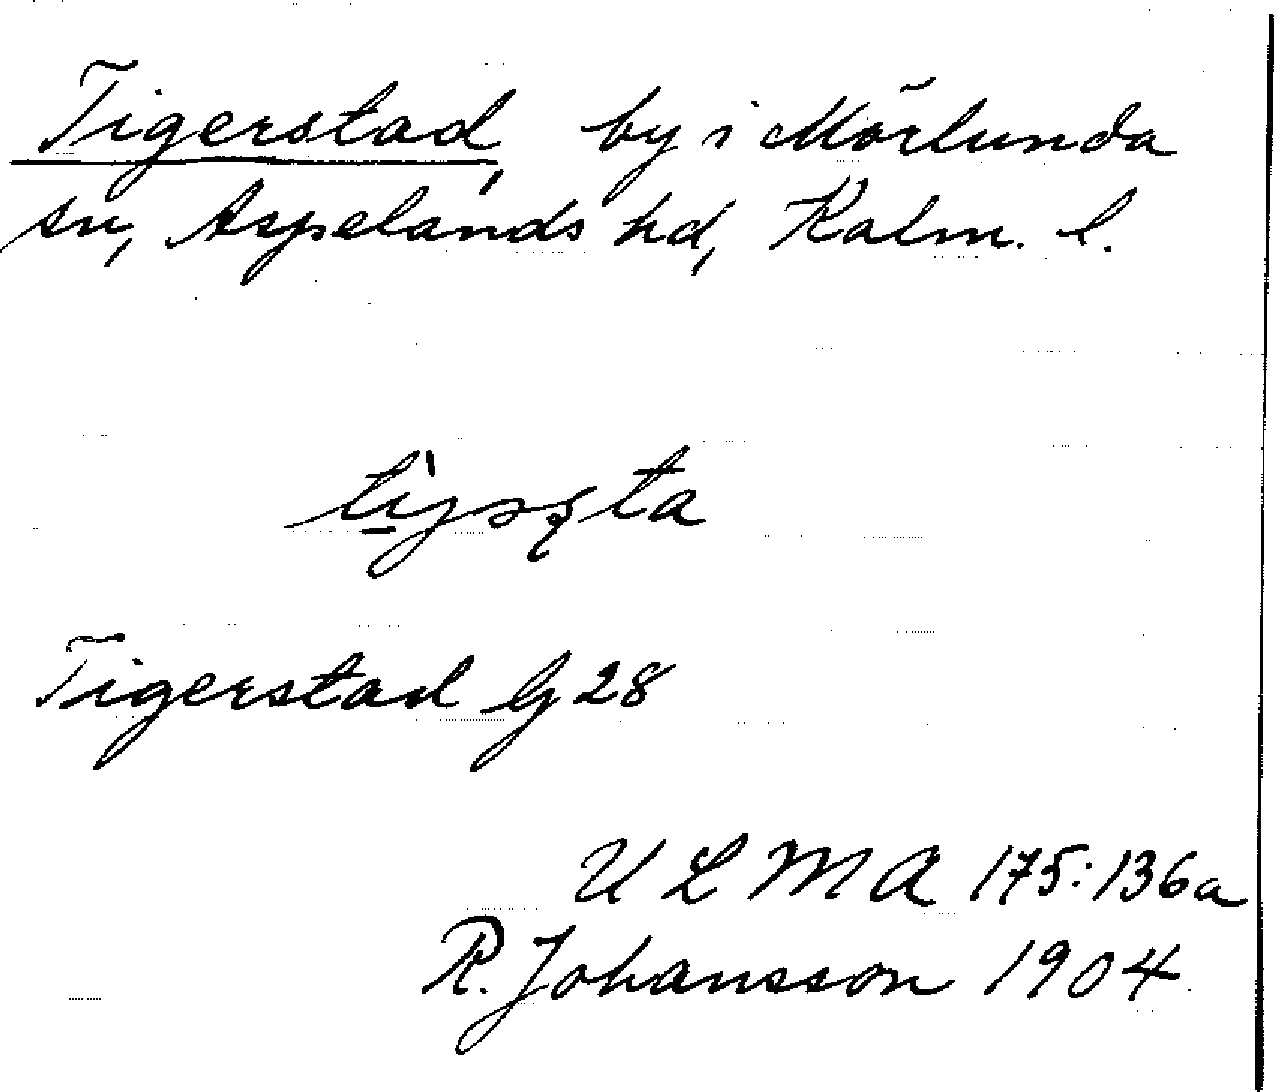 Tigerstad, by i Mörlunda
sn, Aspelands hd, Kalm. l.
Tigerstad G 28
U L M A 175:136a
R. Johansson 1904